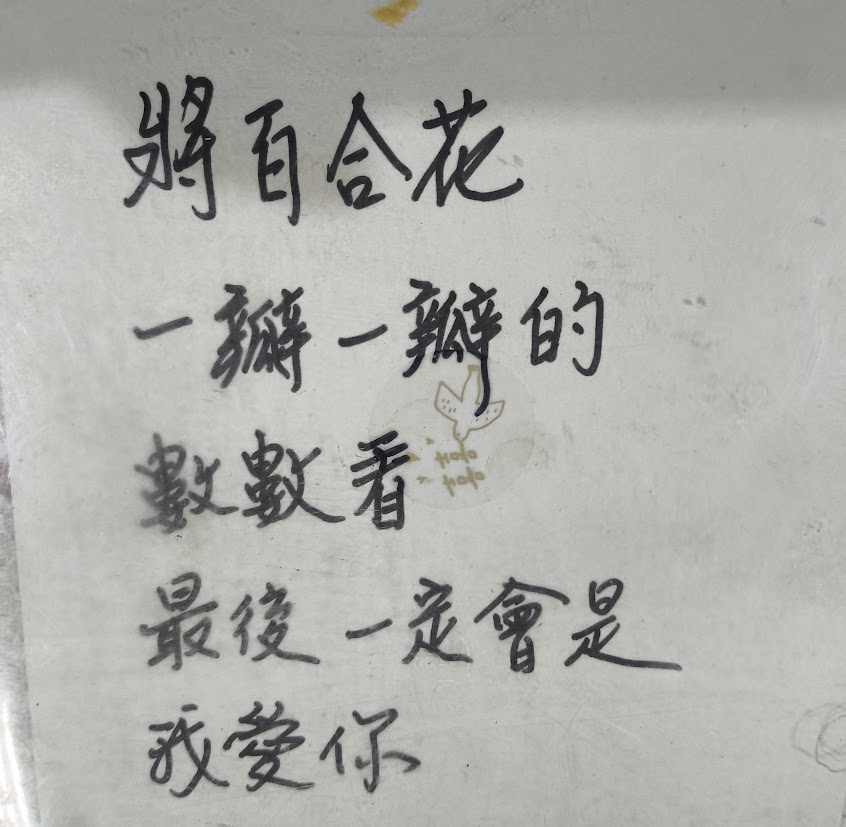 將百合花
一瓣一瓣的
數數看
最後一定會是
我愛你